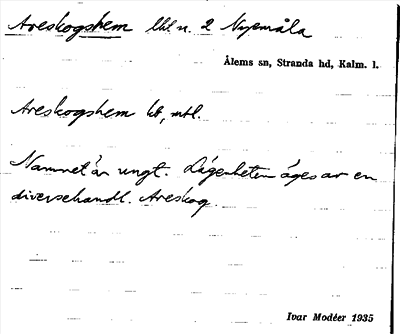 Areskogshem lht u. 2 Nyemåla
Ålems sn, Stranda hd, Kalm. l.
Areskogshem kt, mtl.
Namnet är ungt. Lägenheten äges av en
diversehandl. Areskog.
Ivar Modéer 1935